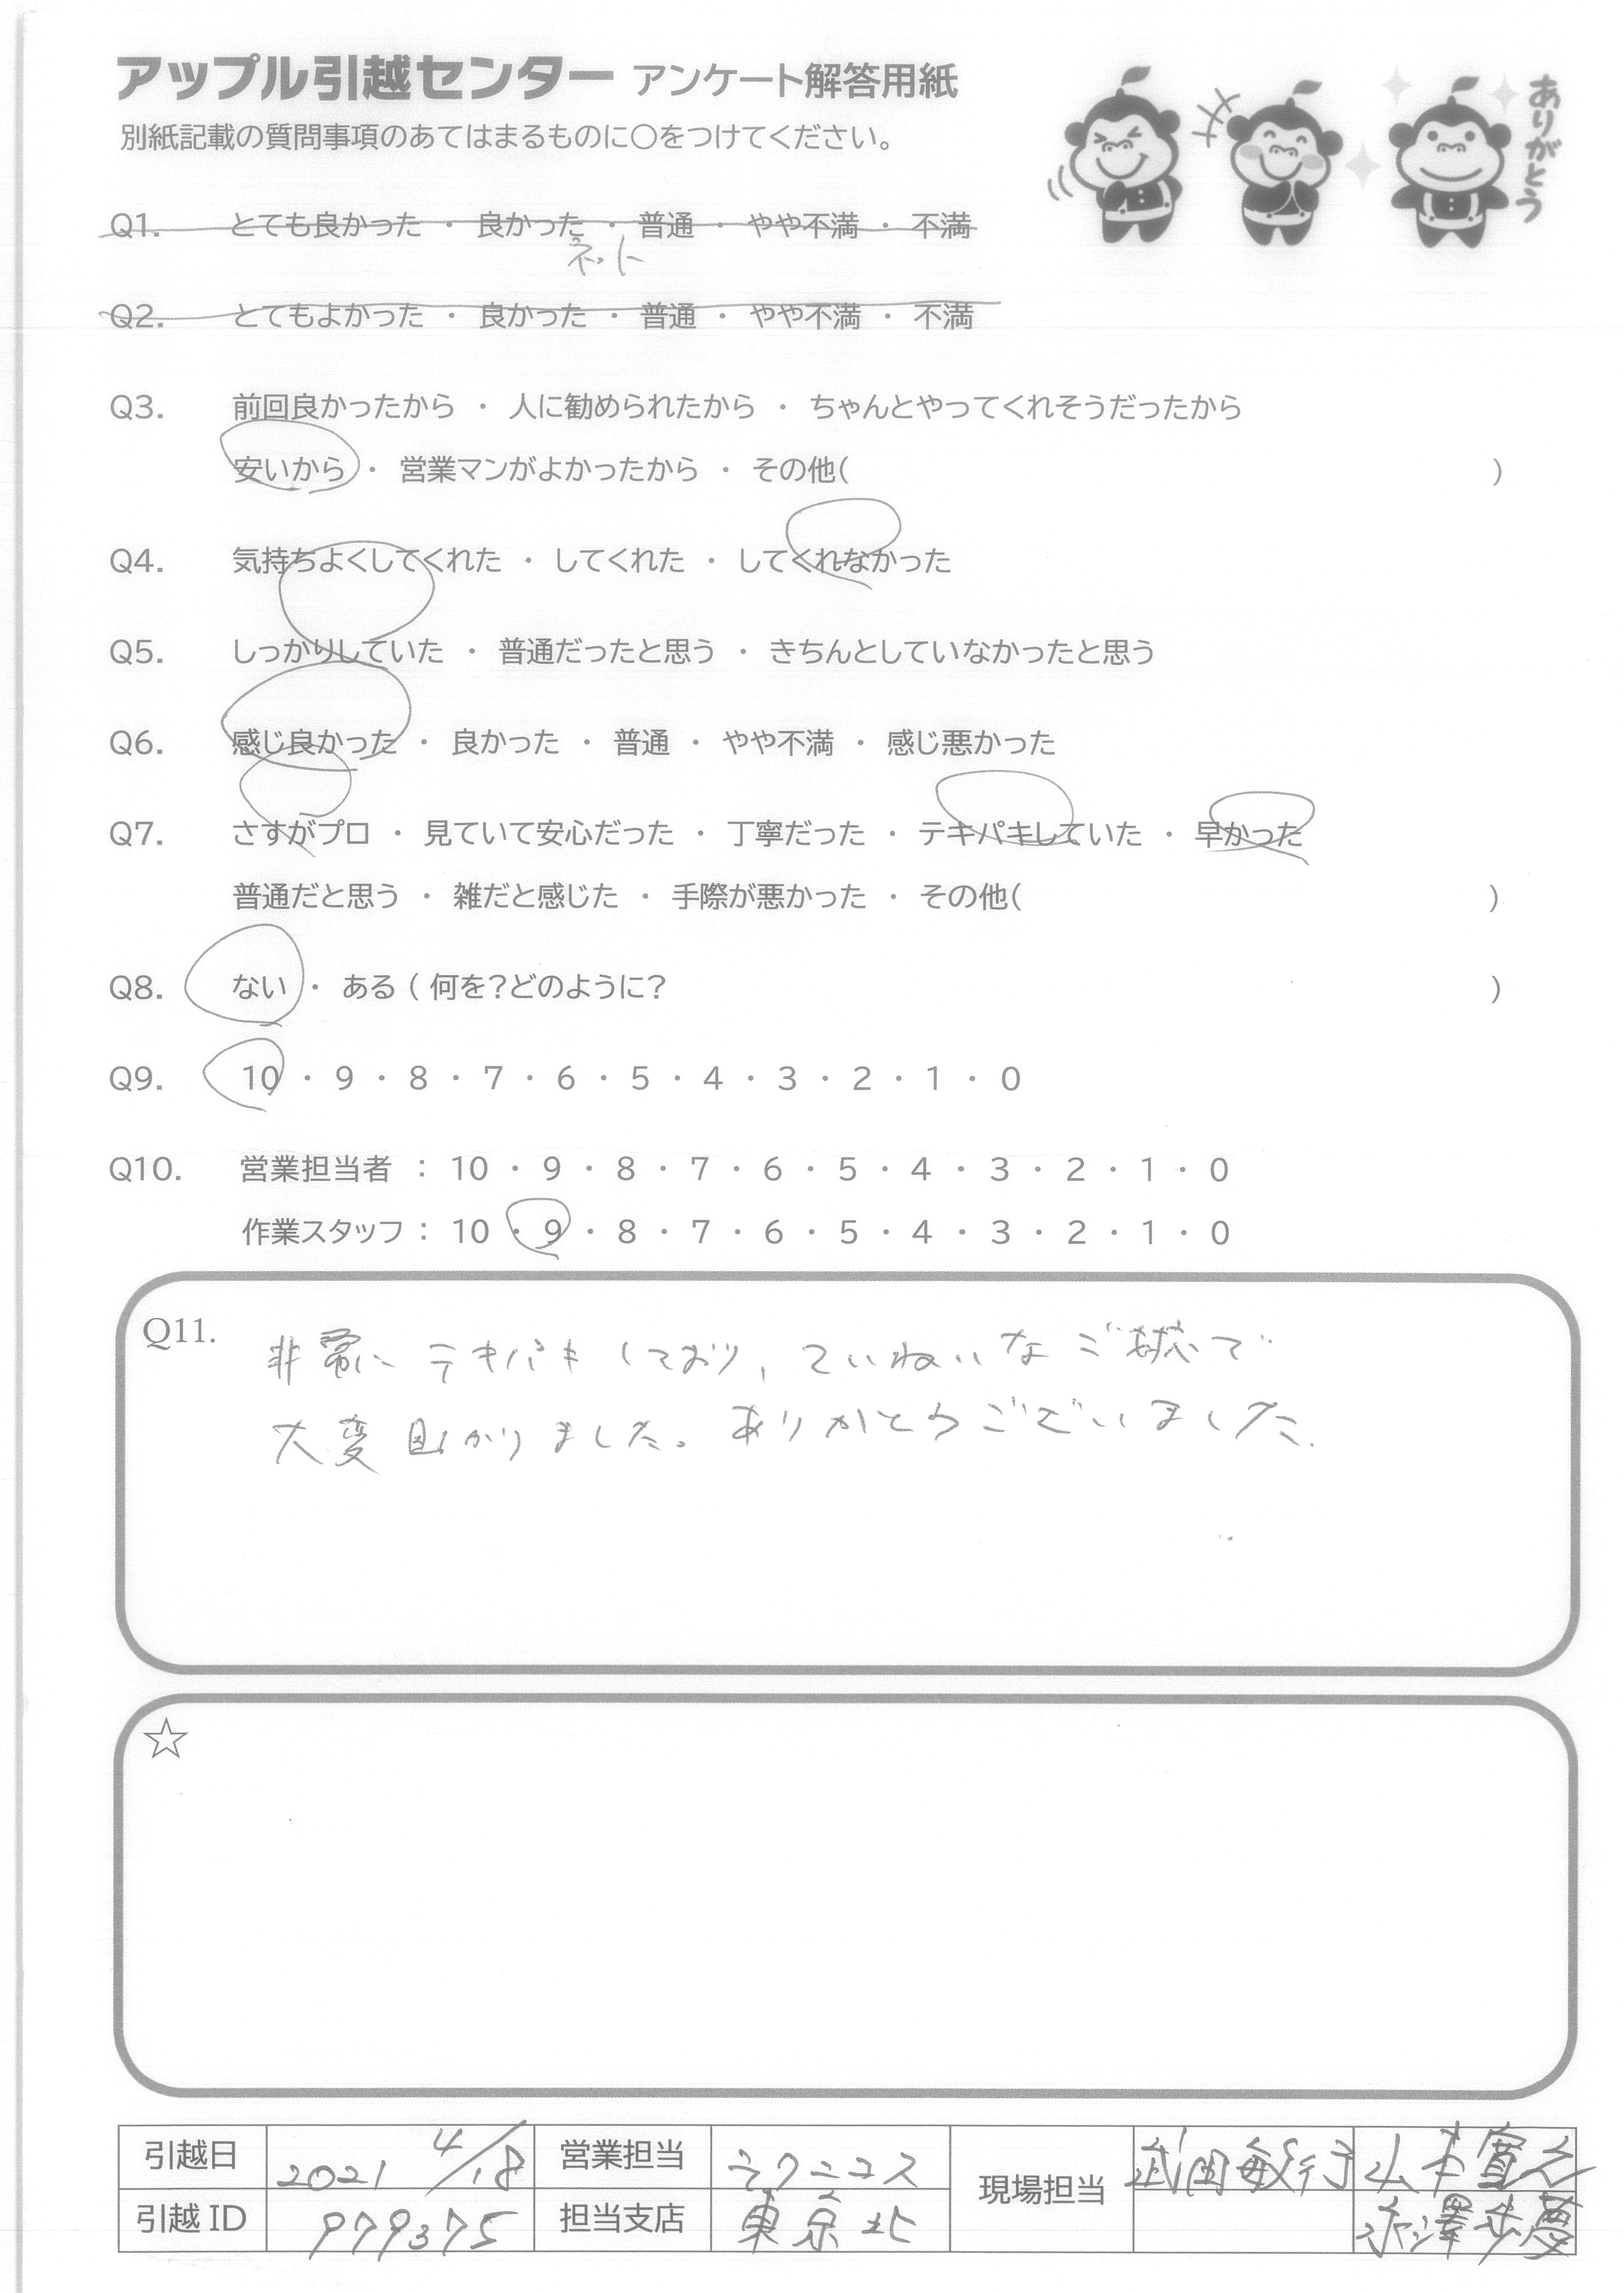 アップル引越センター アンケート解答用紙
ありがとう
別紙記載の質問事項のあてはまるものに○をつけてください。
Q1. とても良かった ・ 良かった ・ 普通 ・ やや不満 ・ 不満
ネット
Q2. とてもよかった ・ 良かった ・ 普通 ・ やや不満 ・ 不満
Q3. 前回良かったから ・ 人に勧められたから ・ ちゃんとやってくれそうだったから
安いから ・ 営業マンがよかったから ・ その他( )
Q4. 気持ちよくしてくれた ・ してくれた ・ してくれなかった
Q5. しっかりしていた ・ 普通だったと思う ・ きちんとしていなかったと思う
Q6. 感じ良かった ・ 良かった ・ 普通 ・ やや不満 ・ 感じ悪かった
Q7. さすがプロ ・ 見ていて安心だった ・ 丁寧だった ・ テキパキしていた ・ 早かった
普通だと思う ・ 雑だと感じた ・ 手際が悪かった ・ その他( )
Q8. ない ・ ある ( 何を?どのように? )
Q9. 10 ・ 9 ・ 8 ・ 7 ・ 6 ・ 5 ・ 4 ・ 3 ・ 2 ・ 1 ・ 0
Q10. 営業担当者 : 10 ・ 9 ・ 8 ・ 7 ・ 6 ・ 5 ・ 4 ・ 3 ・ 2 ・ 1 ・ 0
作業スタッフ : 10 ・ 9 ・ 8 ・ 7 ・ 6 ・ 5 ・ 4 ・ 3 ・ 2 ・ 1 ・ 0
Q11. 非常に テキパキしており, ていねいな ご対応で
大変助かりました。ありがとうございました.
☆
引越日 2021 4/18 営業担当 ラクニコス 現場担当 武田敏行 山本寛之
引越ID 979375 担当支店 東京北 赤澤歩夢